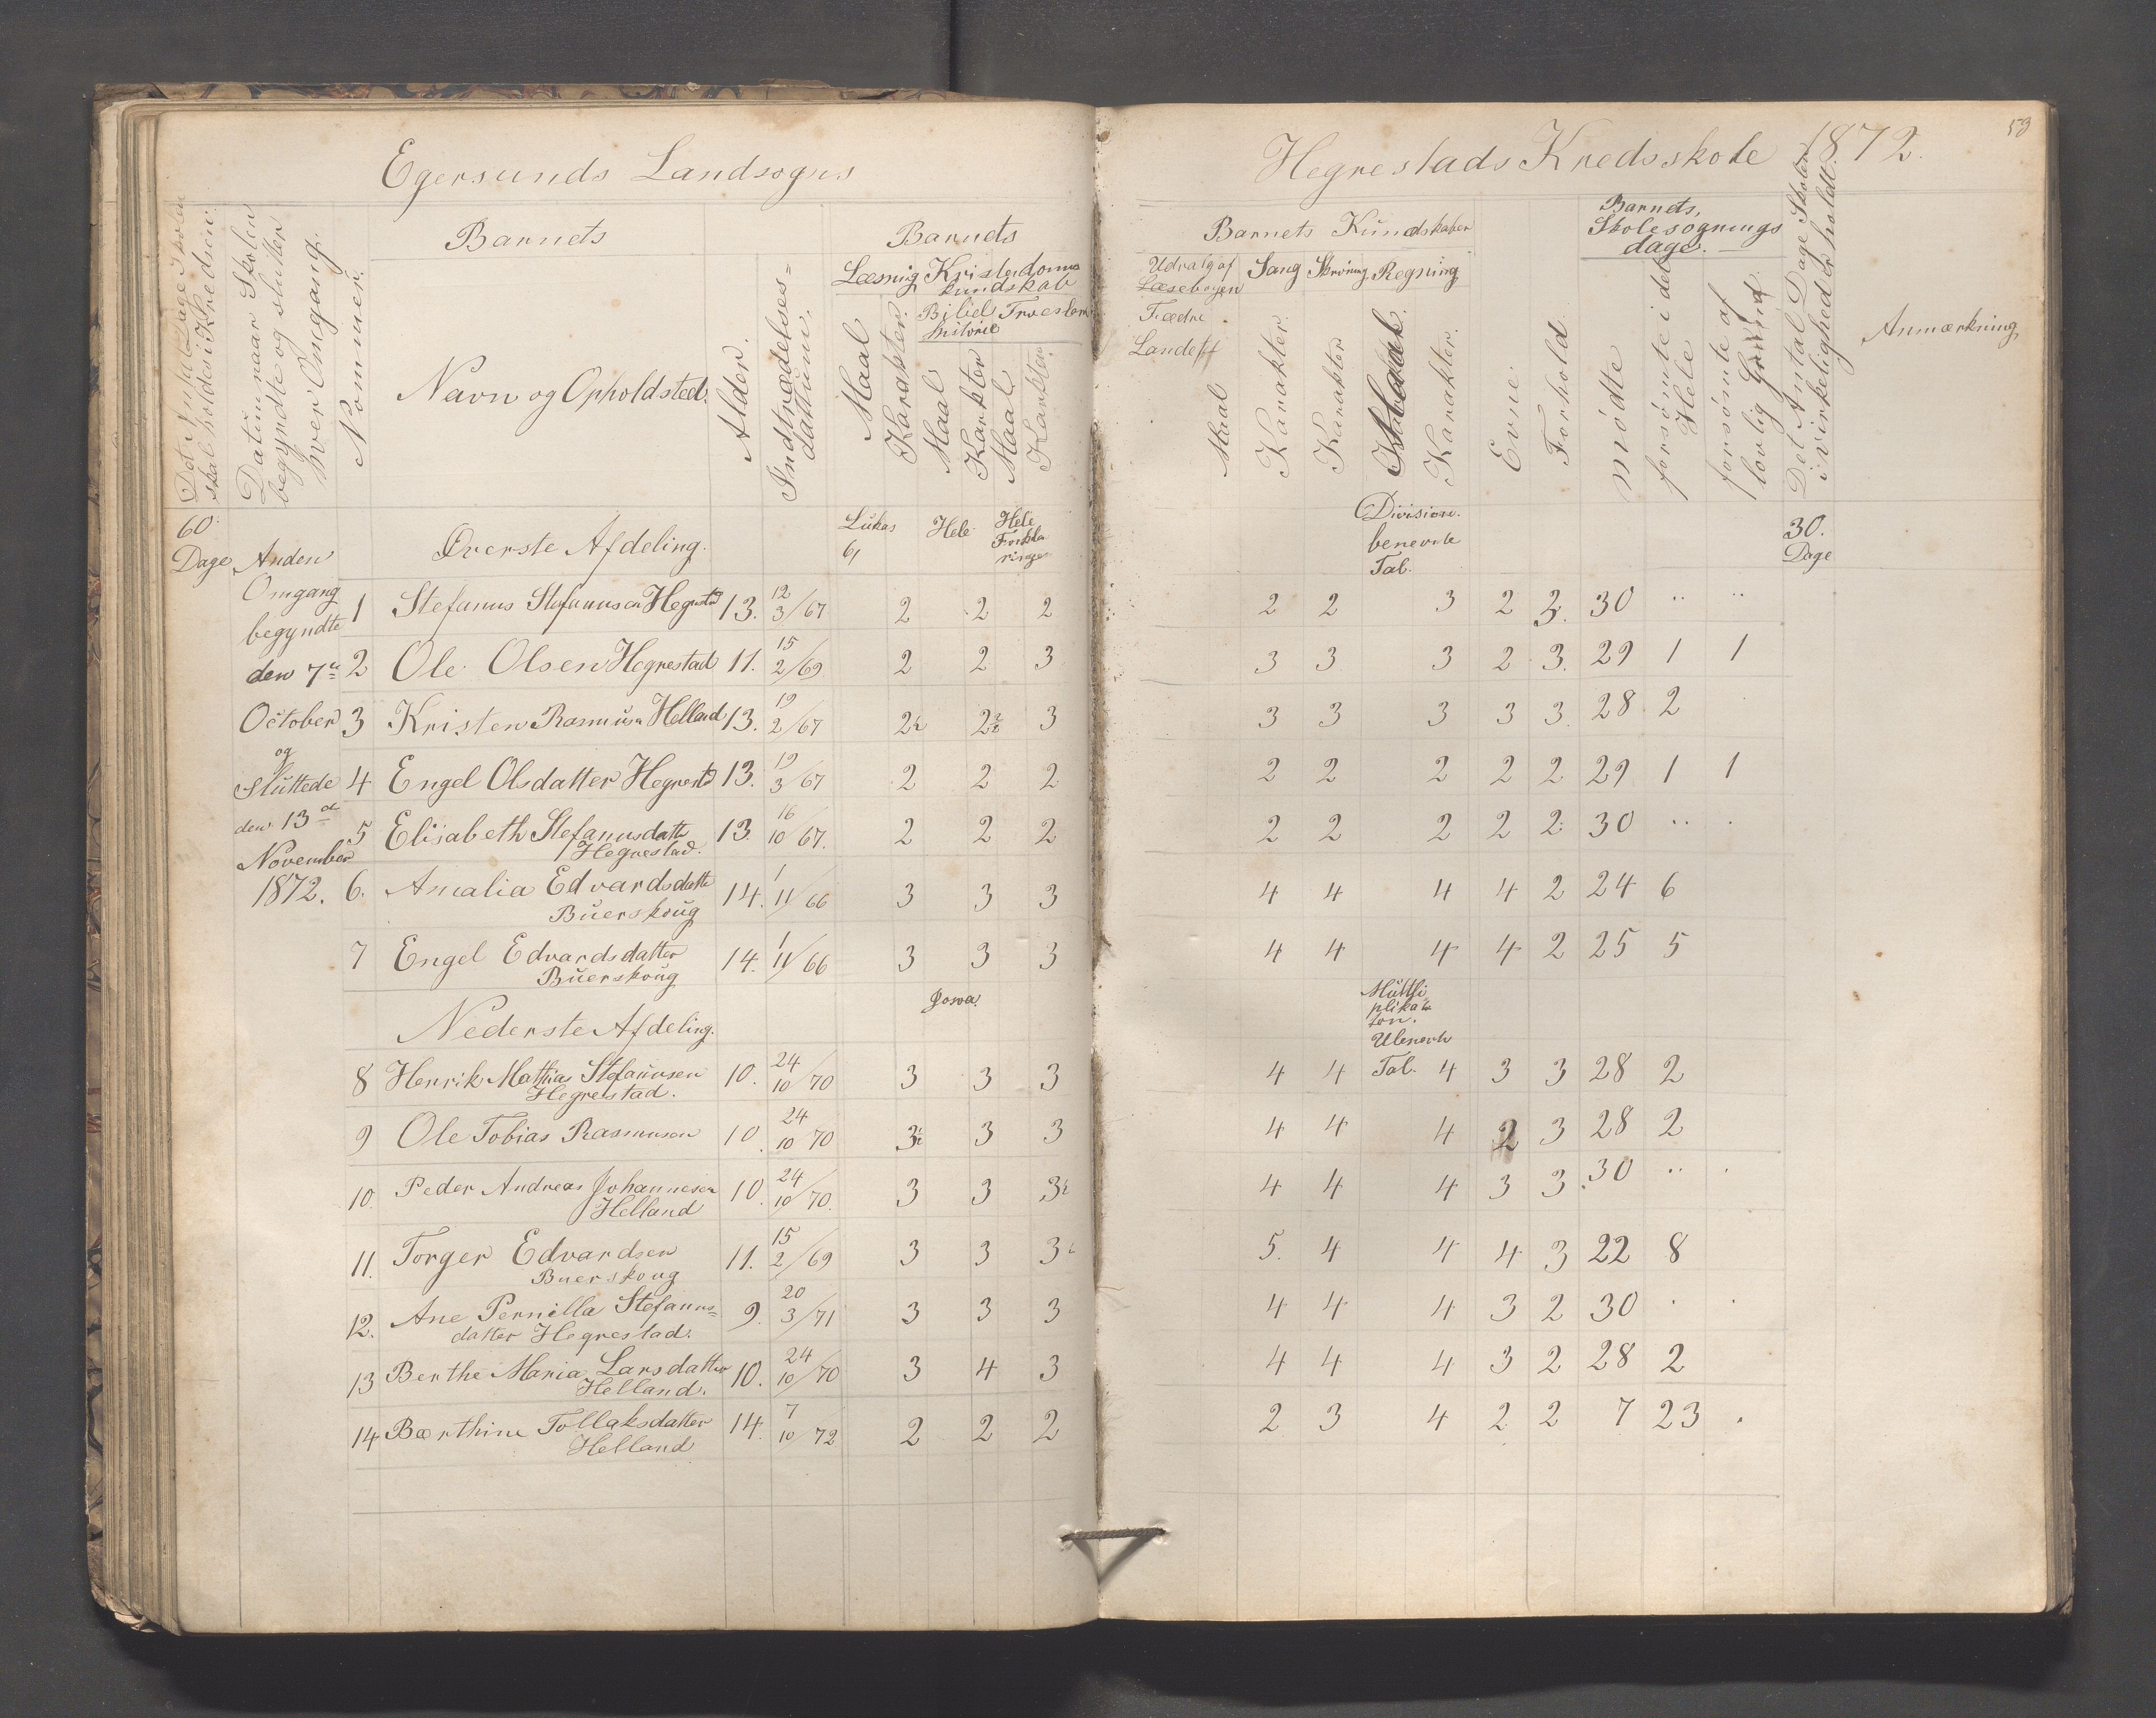 Egersunds Landsogns
Hegrestads Kredsskole 1872.
53
Det Antal Dage Skolen
skal holdes i Kredsene.
Datum naar Skolen
begyndte og slutter
hver Omgang.
Nommer.
Barnets
Navn og Opholdsted.
Alder.
Indtrædelses=
dattum.
Barnets
Læsnig Kristendoms
kundskab
Bibel Troeslære
historie
Maal
Karakter.
Maal
Karakter
Maal
Karakter.
Barnets Kundskaber
Udvalg af Sang Skrivning Regning
Læsebogen
Fædre
Landet
Maal
Karakter
Karakter
Maal
Karakter.
Evne.
Forhold
Barnets,
Skolesøgnings
dage.
mødte
forsømte i det
Hele
forsømte af
lovlig Grund.
Det Antal Dage Skolen
i virkelighed er holdt.
Anmærkning
60
Dage
Anden
Omgang
begyndte
den 7de
October
og
Sluttede
den 13de
November
1872.
Øverste Afdeling. Lukas 6, Hele Hele Forklaringe Division. benevnte Tal. 30. Dage
1 Stefanus Stefanusen Hegrestad 13. 12 3/67 2 2 2 2 2 3 2 3. 30 .. ..
2 Ole Olsen Hegrestad 11. 15 2/69 2 2 3 3 3 3 2 3. 29 1 1
3 Kristen Rasmusn Helland 13. 19 2/67 2½ 2½ 3 3 3 3 3 3. 28 2
4 Engel Olsdatter Hegrestd 13. 19 3/67 2 2 2 2 2 2 2 2 29 1 1
5 Elisabeth Stefanusdattr 13. 16 10/67. 2 2 2 2 2 2 2 2. 30 .. .
Hegrestad.
6. Amalia Edvardsdatte 14. 1 11/66 3 3 3 4 4 4 4 2 24 6
Buerskoug
7 Engel Edvardsdatter 14. 1 11/66 3 3 3 4 4 4 4 2 25 5
Buerskoug
Nederste Afdeling. Josva. Multi plika ton. Ubenevte Tal.
8 Henrik Mathias Stefanusen 10. 24 10/70 3 3 3 4 4 4 3 3 28 2
Hegrestad.
9 Ole Tobias Rasmusen 10. 24 10 70 3½ 3 3 4 4 4 2 3 28 2
10. Peder Andreas Johannesen 10. 24 10/70. 3 3 3½ 4 4 4 3 3. 30 .. .
Helland
11. Torger Edvardsen 11. 15 2/69 3 3 3 5. 4 4 4 3 22 8
Buerskoug
12. Ane Pernilla Stefanus= 9. 20 3/71 3 3 3 4 4 4 3 2 30 . .
datter Hegrestad.
13 Berthe Maria Larsdatter 10. 24 10/70 3 4 3 4 4 4 3 2 28 2
Helland.
14 Bærthine Tollaksdatter 14. 7 10/72 2 2 2 2 3 4 2 2 7 23 .
Helland